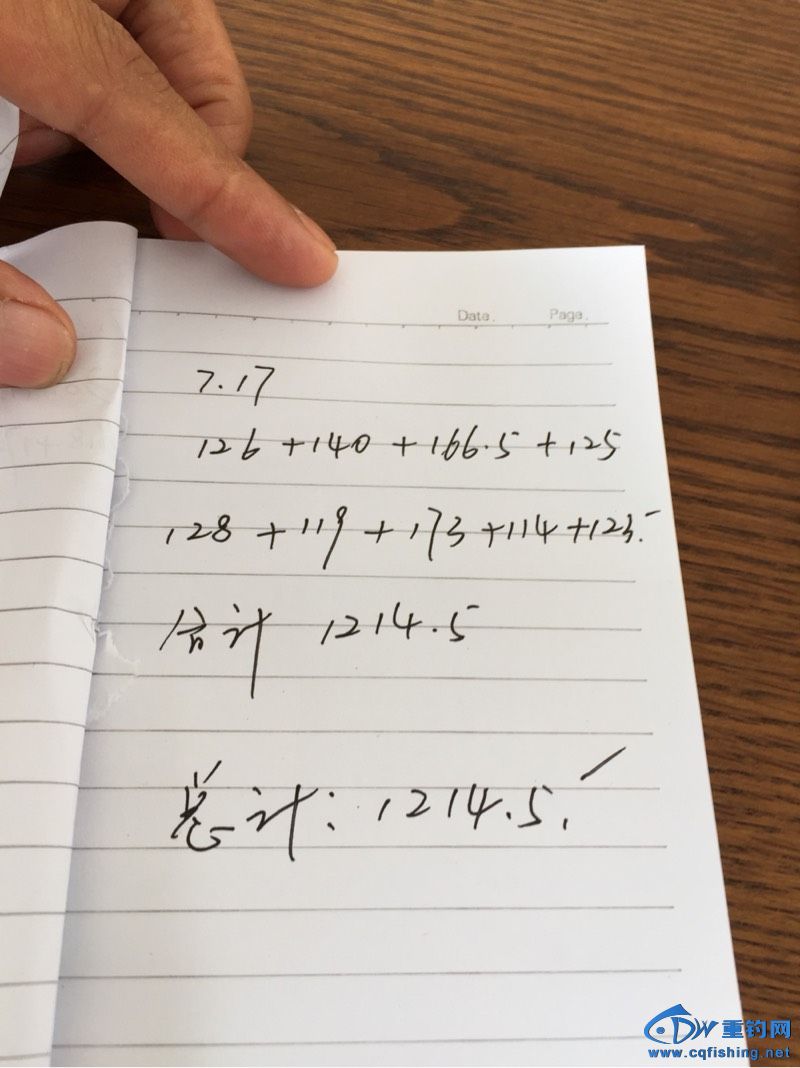 Date. Page.
7.17
126+140+166.5+125
128+119+173+114+123.
合计 1214.5
总计: 1214.5.
DW重钓网
www.cqfishing.net